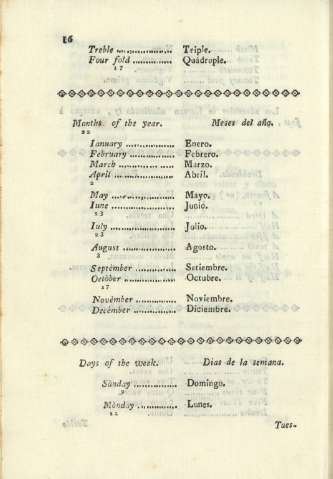 16
Treble .................. Teiple.
Four fold ............... Quádrople.
1 7
Months. of the year. Meses del año.
2 2
Ianuary ................ Enero.
February ............... Febrero.
March .................. Marzo.
April .................. Abril.
2
May .................... Mayo.
Iune ................... Junio.
2 3
Iuly ................... Julio.
2 3
August ................. Agosto.
3
Septémber .............. Setiembre.
Octóber ................ Octubre.
1 7
Novémber ............... Noviembre.
Decémber ............... Diciembre.
Days of the week. Dias de la semana.
Sùnday ................. Domingo.
Mònday ................. Lunes.
1 2
Tues-